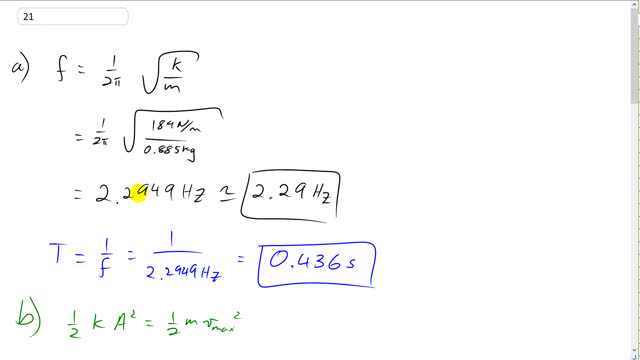 21
a) f = 1/2π √(k/m)
= 1/2π √(184 N/m / 0.885 kg)
= 2.2949 Hz ≃ 2.29 Hz
T = 1/f = 1/2.2949 Hz = 0.436 s
b) 1/2 k A² = 1/2 m v_max²